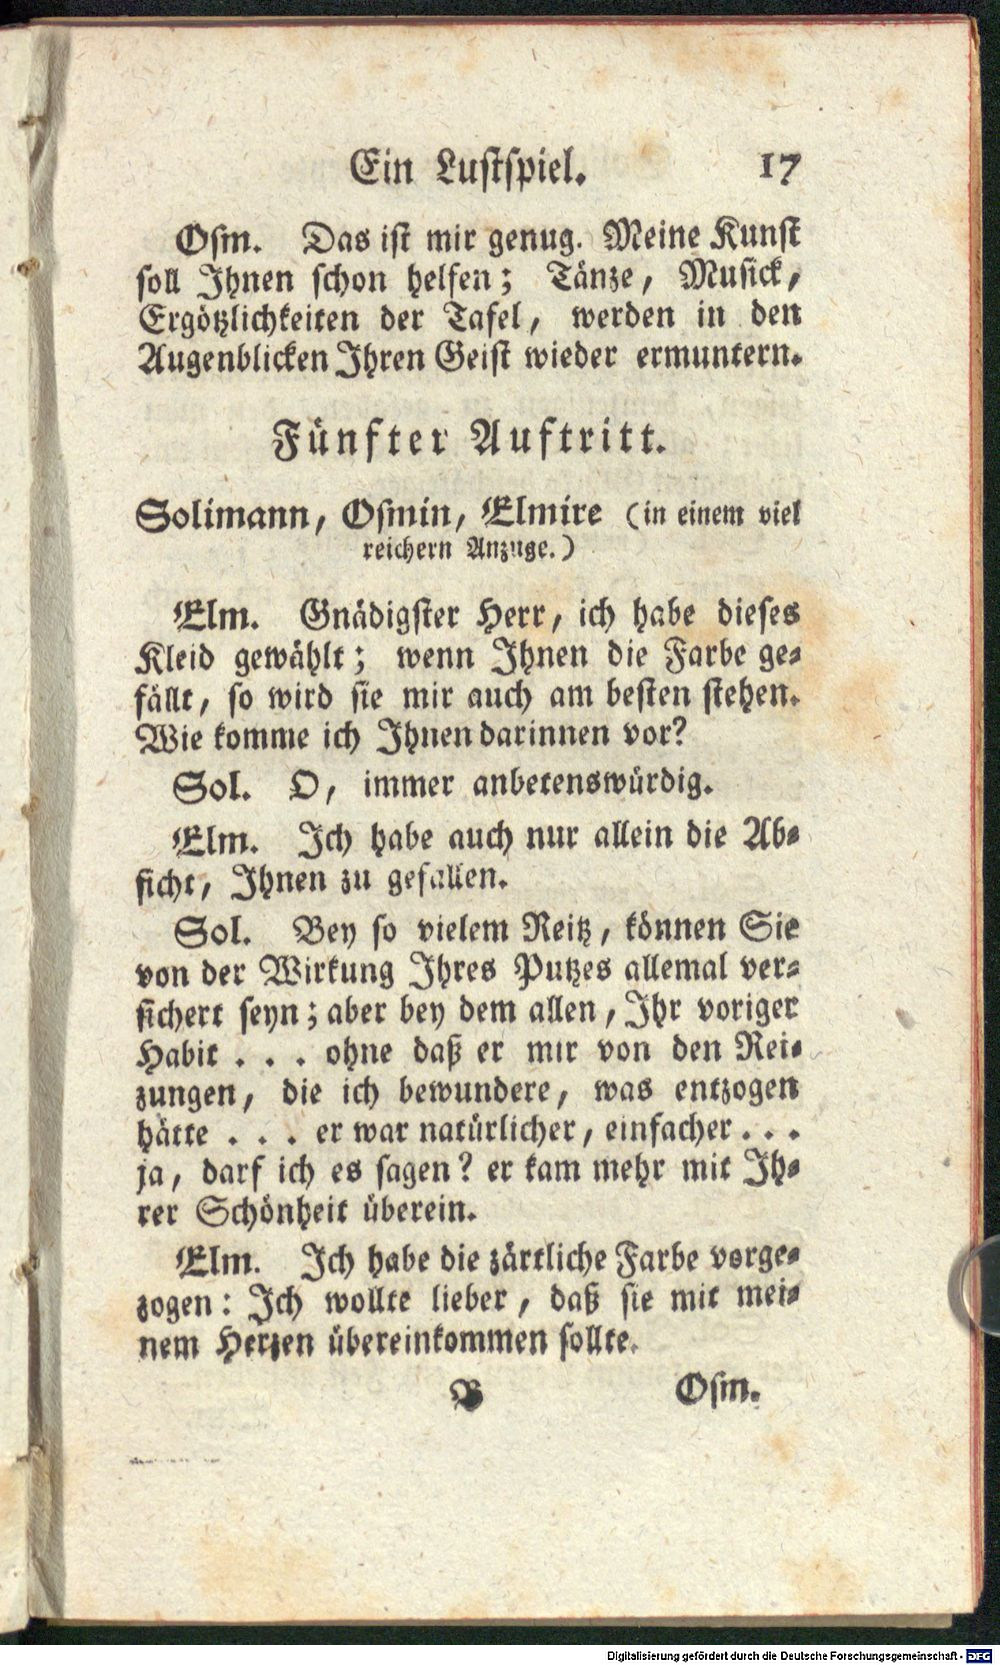 Ein Lustspiel. 17
Osm. Das ist mir genug. Meine Kunst
soll Ihnen schon helfen; Tänze, Musick,
Ergötzlichkeiten der Tafel, werden in den
Augenblicken Ihren Geist wieder ermuntern.
Fünfter Auftritt.
Solimann, Osmin, Elmire (in einem viel
reichern Anzuge.)
Elm. Gnädigster Herr, ich habe dieses
Kleid gewählt; wenn Ihnen die Farbe ge-
fällt, so wird sie mir auch am besten stehen.
Wie komme ich Ihnen darinnen vor?
Sol. O, immer anbetenswürdig.
Elm. Ich habe auch nur allein die Ab-
sicht, Ihnen zu gefallen.
Sol. Bey so vielem Reitz, können Sie
von der Wirkung Ihres Putzes allemal ver-
sichert seyn; aber bey dem allen, Ihr voriger
Habit . . . ohne daß er mir von den Rei-
zungen, die ich bewundere, was entzogen
hätte . . . er war natürlicher, einfacher . . .
ja, darf ich es sagen? er kam mehr mit Ih-
rer Schönheit überein.
Elm. Ich habe die zärtliche Farbe vorge-
zogen: Ich wollte lieber, daß sie mit mei-
nem Herzen übereinkommen sollte.
B Osm.
Digitalisierung gefördert durch die Deutsche Forschungsgemeinschaft - DFG